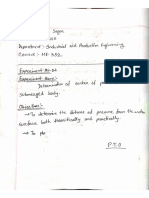 Sagor
Department:- Industrial and Production Engineering
Course:-
Experiment No:
Experiment Name:-
Determination of center of
submerged body.
Objectives:-
→ To determine the distance of pressure from the
surface both theoretically and practically.
→ To
P.T.O